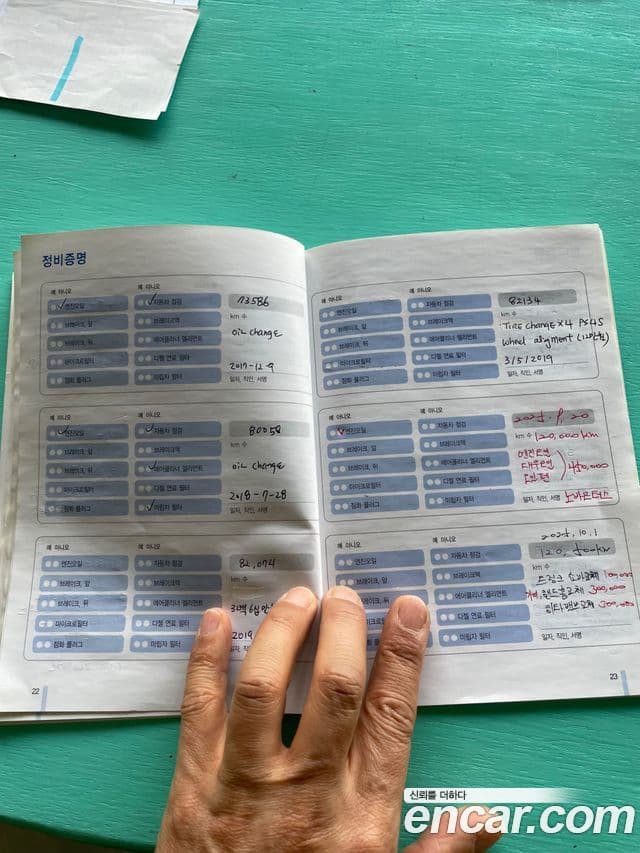 정비증명
예 아니오
엔진오일
브레이크, 앞
브레이크, 뒤
마이크로필터
점화 플러그
예 아니오
자동차 점검
브레이크액
에어클리너 엘리먼트
디젤 연료 필터
미립자 필터
73586
km 수
oil change
2017-12-9
일자, 직인, 서명
예 아니오
엔진오일
브레이크, 앞
브레이크, 뒤
마이크로필터
점화 플러그
예 아니오
자동차 점검
브레이크액
에어클리너 엘리먼트
디젤 연료 필터
미립자 필터
80058
km 수
oil change
2018-7-28
일자, 직인, 서명
예 아니오
엔진오일
브레이크, 앞
브레이크, 뒤
마이크로필터
점화 플러그
예 아니오
자동차 점검
브레이크액
에어클리너 엘리먼트
디젤 연료 필터
미립자 필터
82,074
km 수
2019
일자, 직인, 서명
22
예 아니오
엔진오일
브레이크, 앞
브레이크, 뒤
마이크로필터
점화 플러그
예 아니오
자동차 점검
브레이크액
에어클리너 엘리먼트
디젤 연료 필터
미립자 필터
82134
km 수
Tire change x 4 PS4S
wheel alignment
3/5/2019
일자, 직인, 서명
예 아니오
엔진오일
브레이크, 앞
브레이크, 뒤
마이크로필터
점화 플러그
예 아니오
자동차 점검
브레이크액
에어클리너 엘리먼트
디젤 연료 필터
미립자 필터
km 수 120,000km
일자, 직인, 서명
예 아니오
엔진오일
브레이크, 앞
브레이크, 뒤
예 아니오
자동차 점검
브레이크액
에어클리너 엘리먼트
디젤 연료 필터
미립자 필터
10.1
km 수
100,000
300,000
300,000
일자, 직인, 서명
23
신뢰를 더하다
encar.com